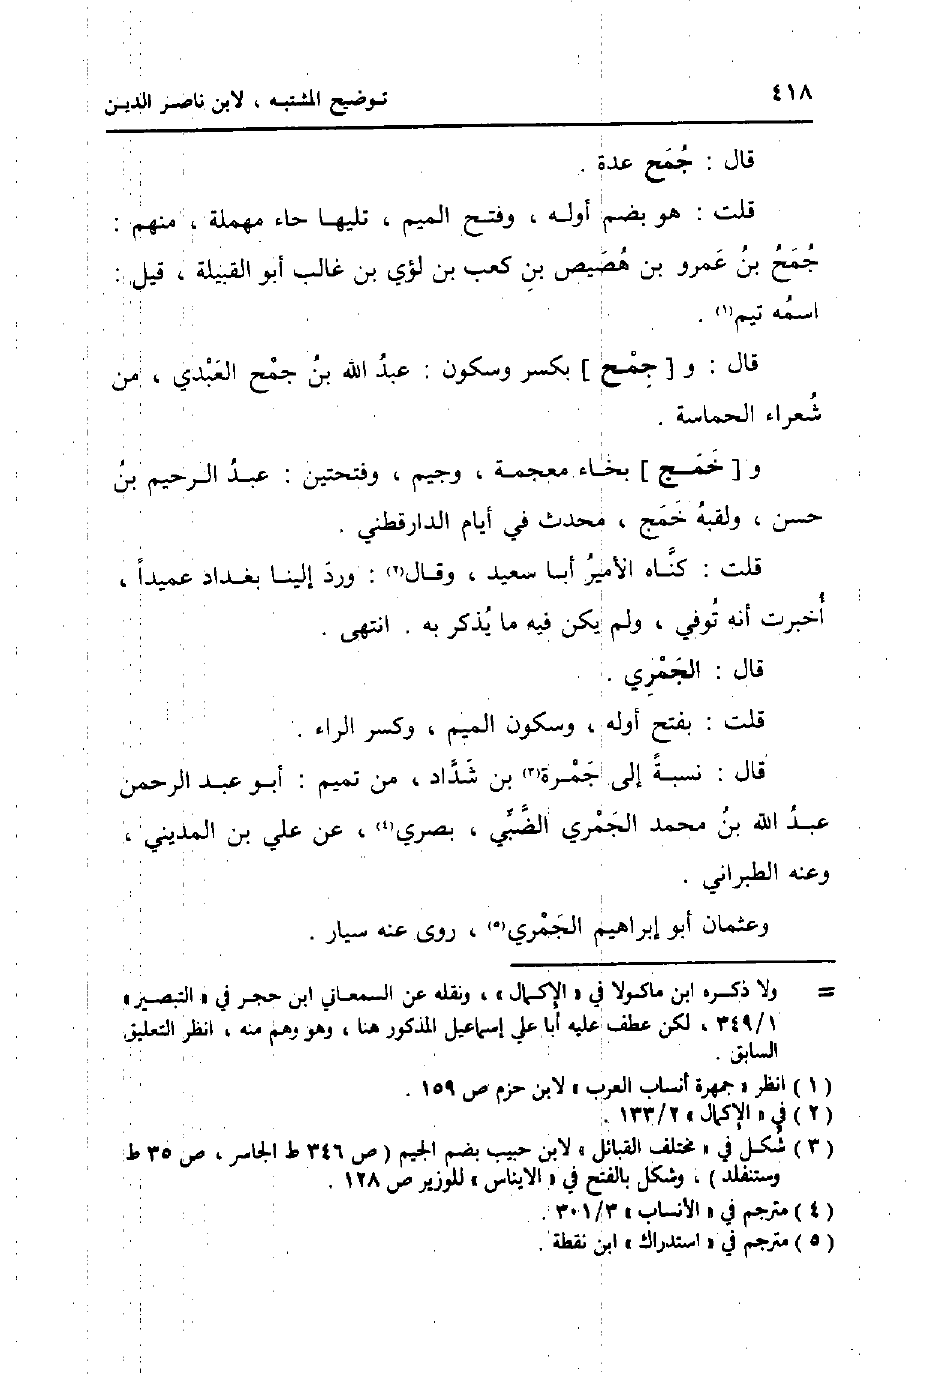 ٤١٨
توضيح المشتبه ، لابن ناصر الدين
قال : جُمَح عدة .
قلت : هو بضم أوله ، وفتح الميم ، تليها حاء مهملة ، منهم :
جُمَحُ بنُ عَمرو بن هُصَيص بنِ كعب بن لؤي بن غالب أبو القبيلة ، قيل :
اسمُه تيم(١) .
قال : و [ جِمْح ] بكسر وسكون : عبدُ الله بنُ جمْح العَبْدي ، من
شُعراء الحماسة .
و [ خَمَج ] بخاء معجمة ، وجيم ، وفتحتين : عبدُ الرحيم بنُ
حسن ، ولقبهُ خَمَج ، محدث في أيام الدارقطني .
قلت : كنَّاه الأميرُ أبا سعيد ، وقال(٢) : وردَ إلينا بغداد عميداً ،
أُخبرت أنه تُوفي ، ولم يكن فيه ما يُذكر به . انتهى .
قال : الجَمْرِي .
قلت : بفتح أوله ، وسكون الميم ، وكسر الراء .
قال : نسبةً إلى جَمْرة(٣) بن شَدَّاد ، من تميم : أبو عبد الرحمن
عبدُ الله بنُ محمد الجَمْري الضَّبِّي ، بصري(٤) ، عن علي بن المديني ،
وعنه الطبراني .
وعثمان أبو إبراهيم الجَمْري(٥) ، روى عنه سيار .
= ولا ذكره ابن ماكولا في « الإكمال » ، ونقله عن السمعاني ابن حجر في « التبصير »
٣٤٩/١ ، لكن عطف عليه أبا علي إسماعيل المذكور هنا ، وهو وهم منه ، انظر التعليق
السابق .
( ١ ) انظر « جمهرة أنساب العرب » لابن حزم ص ١٥٩ .
( ٢ ) في « الإكمال » ١٣٣/٢ .
( ٣ ) شُكل في « مختلف القبائل » لابن حبيب بضم الجيم ( ص ٣٤٦ ط الجاسر ، ص ٣٥ ط
وستنفلد ) ، وشكل بالفتح في « الايناس » للوزير ص ١٢٨ .
( ٤ ) مترجم في « الأنساب » ٣٠١/٣ .
( ٥ ) مترجم في « استدراك » ابن نقطة .